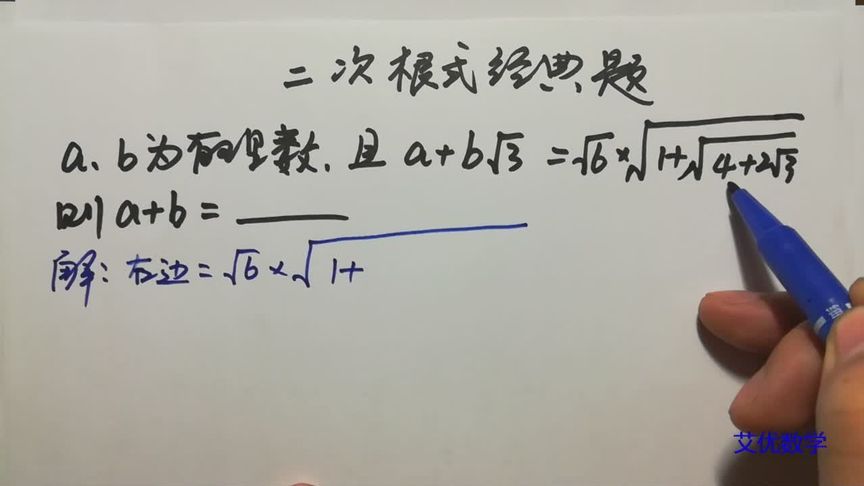 二次根式经典题
a、b为有理数,且 a+b√3 =√6×√(1+√(4+2√3))
则 a+b = ____
解:右边=√6×√(1+
艾优数学